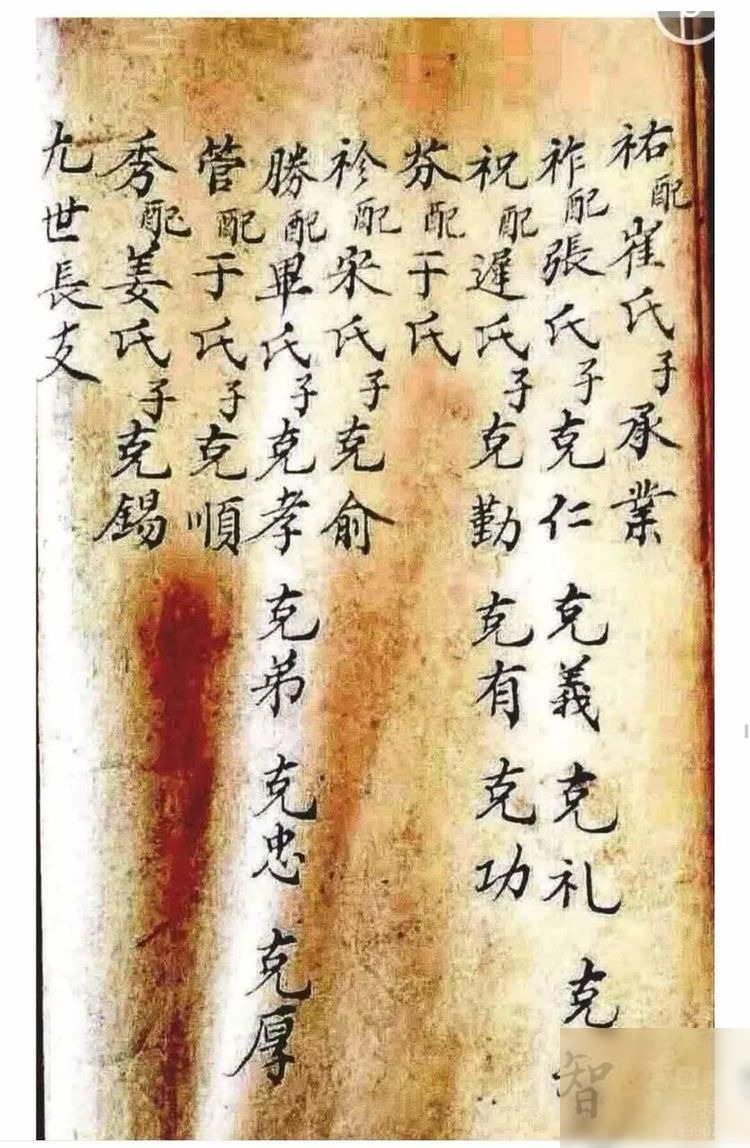 祐配崔氏子承業
祚配張氏子克仁 克義 克礼 克智
祝配遲氏子克勤 克有 克功
芬配于氏
衫配宋氏子克俞
勝配畢氏子克孝 克弟 克忠 克厚
管配于氏子克順
秀配姜氏子克錫
九世長支